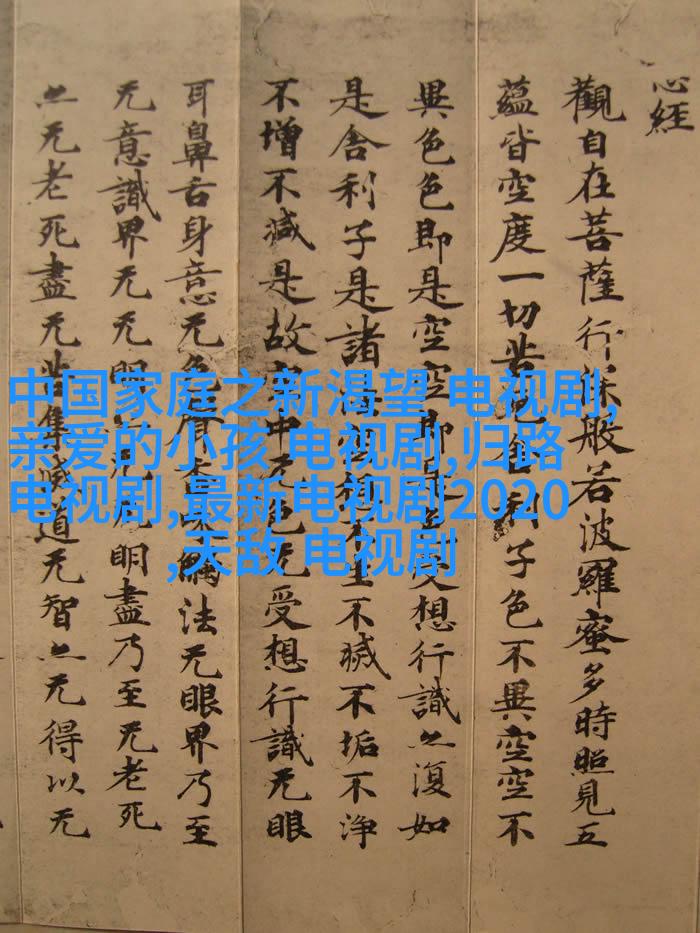 心經
觀自在菩薩行深般若波羅蜜多時照見五
蘊皆空度一切苦厄舍利子色不異空空不
異色色即是空空即是色受想行識亦復如
是舍利子是諸法空相不生不滅不垢不淨
不增不減是故空中无色无受想行識无眼
耳鼻舌身意无色聲香味觸法无眼界乃至
无意識界无无明亦无无明盡乃至无老死
亦无老死盡无苦集滅道无智亦无得以无
中国家庭之新渴望 电视剧,
亲爱的小孩 电视剧,归路
电视剧,最新电视剧2020
,天敌 电视剧